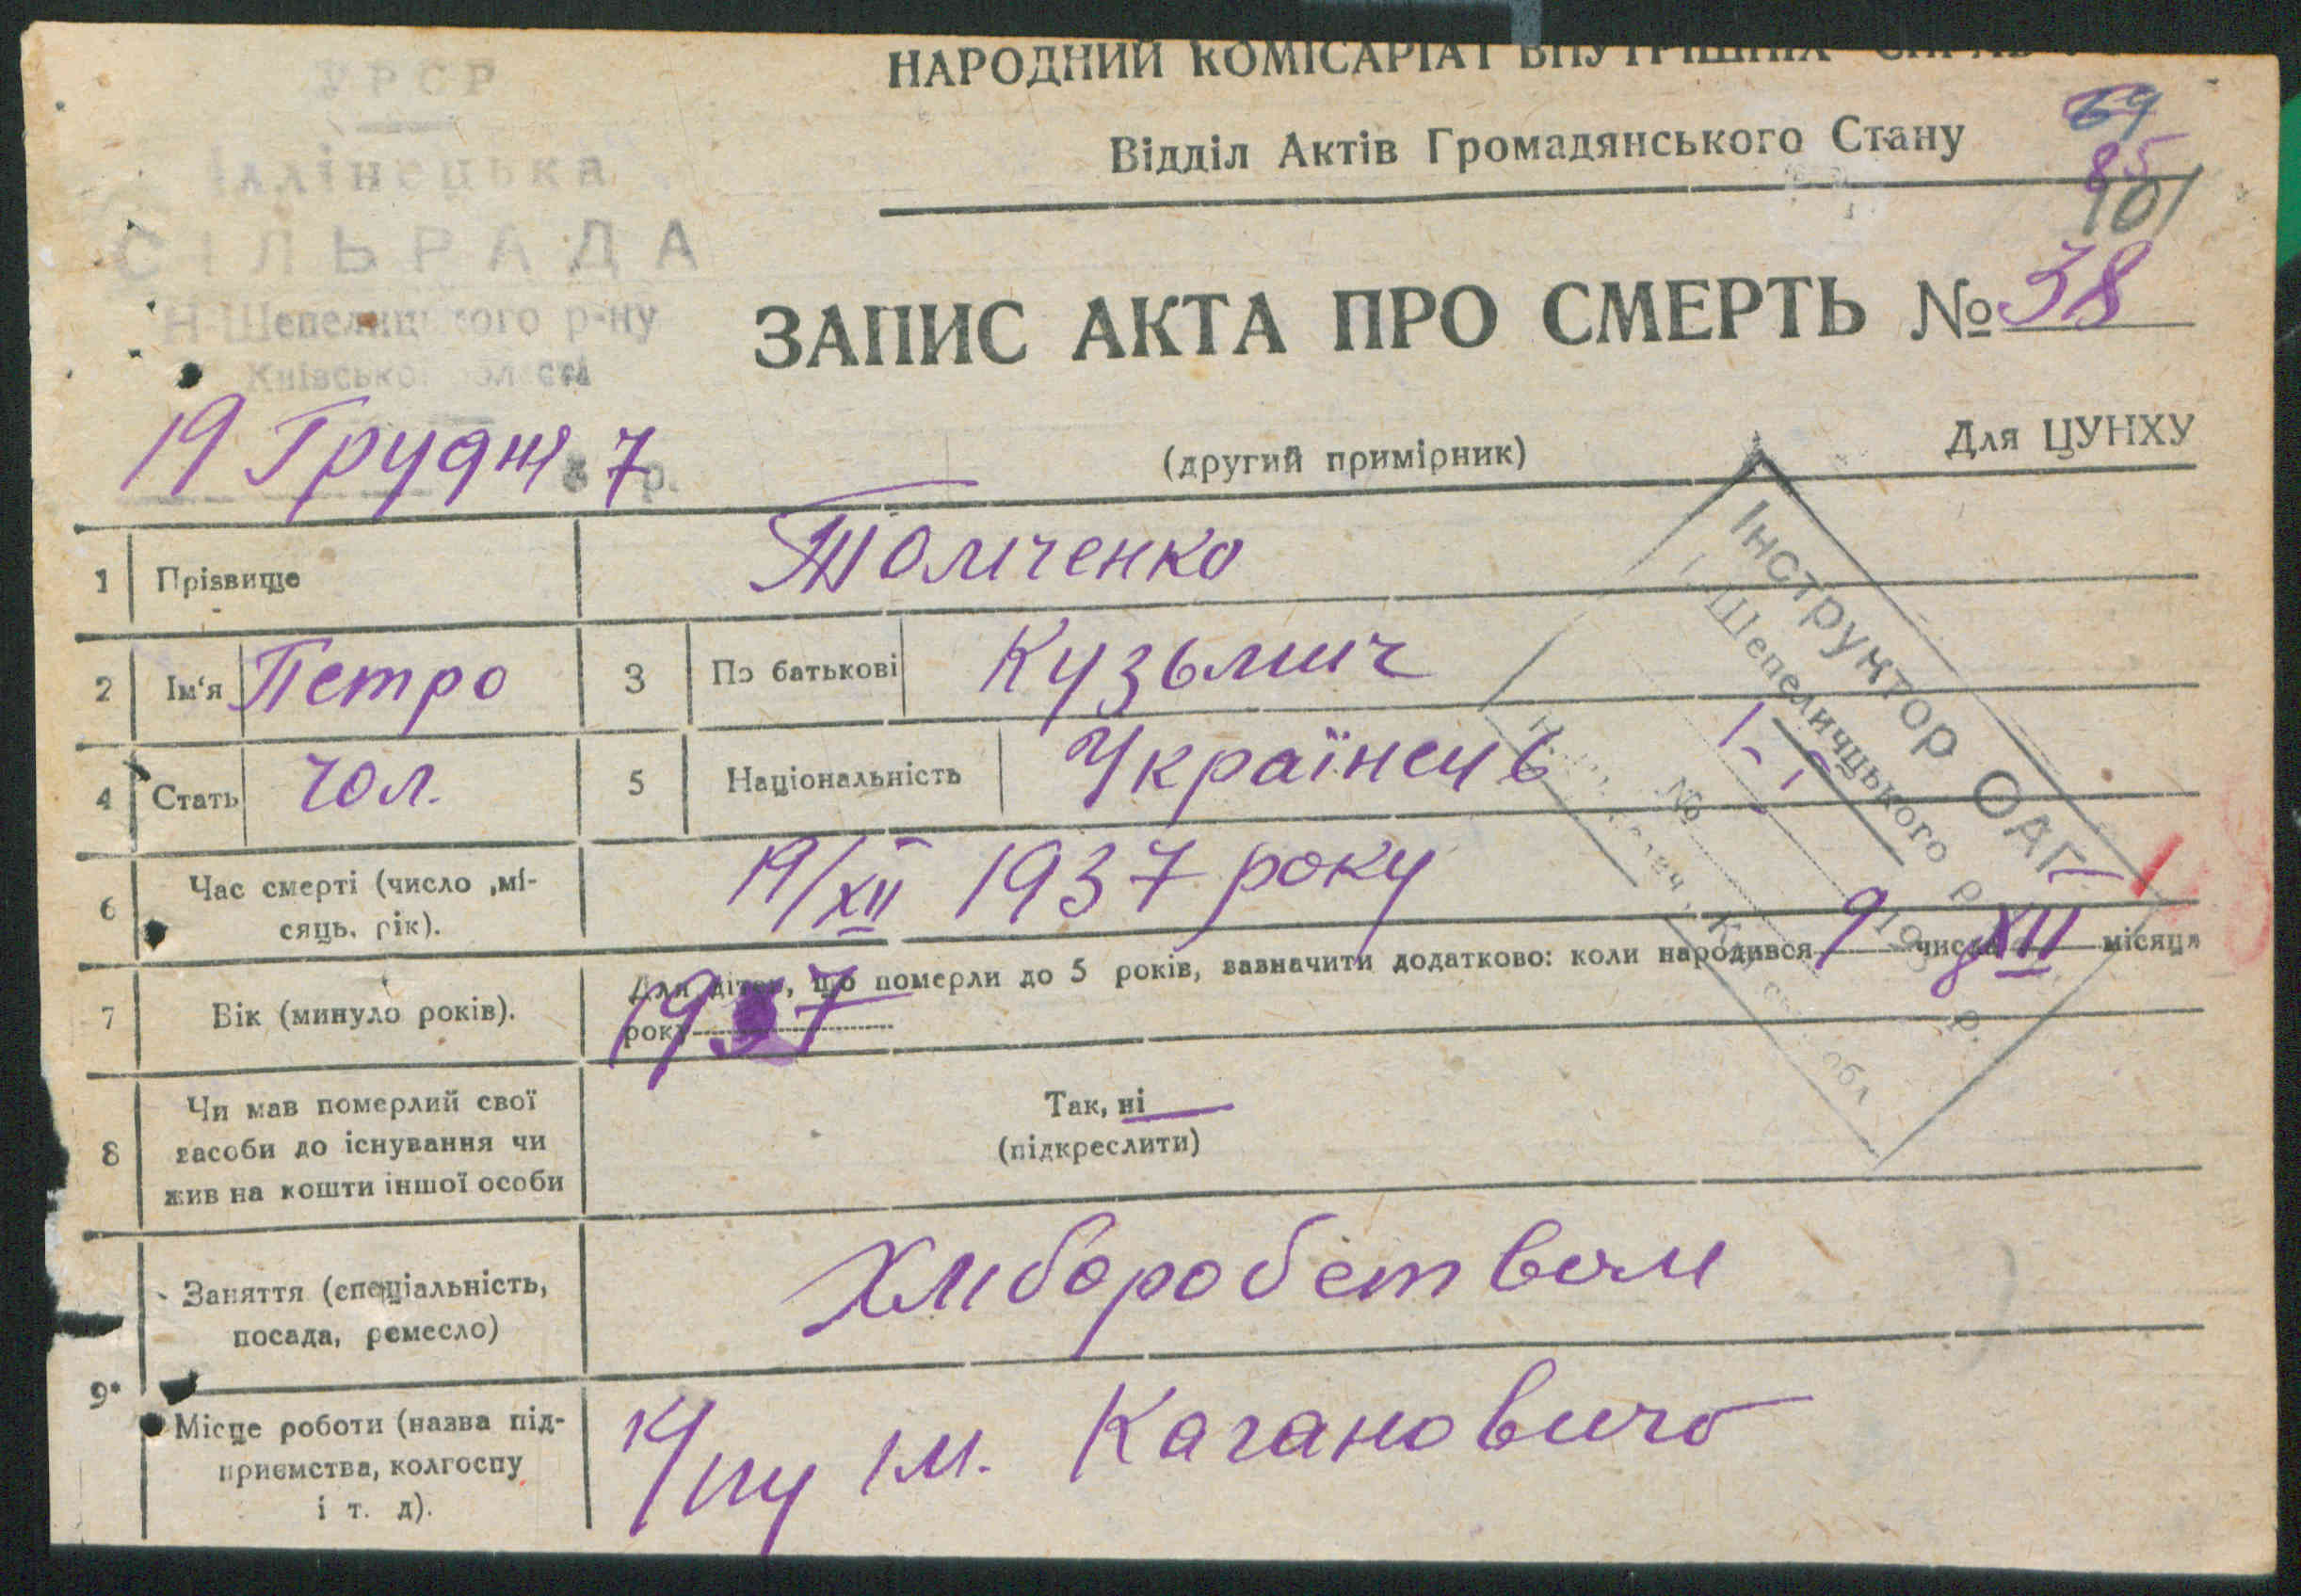 УРСР
Іллінецька
СІЛЬРАДА
Н-Шепелицького р-ну
Київської області
19 Грудня 7 р.
НАРОДНИЙ КОМІСАРІАТ ВНУТРІШНІХ СПРАВ
Відділ Актів Громадянського Стану
69
85
101
ЗАПИС АКТА ПРО СМЕРТЬ № 38
(другий примірник)
Для ЦУНХУ
Інструктор ОАГС
Н-Шепелицького р.
№
193 р.
обл.
1 Прізвище Толіченко
2 Ім'я Петро 3 По батькові Кузьмич
4 Стать чол. 5 Національність Українець
6 Час смерті (число, мі-
сяць, рік).
19/XII 1937 року
7 Вік (минуло років).
Для дітей, що померли до 5 років, зазначити додатково: коли народився 9 числа XII місяця
1937 року
8 Чи мав померлий свої
засоби до існування чи
жив на кошти іншої особи
Так, ні
(підкреслити)
9 Заняття (спеціальність,
посада, ремесло)
Хліборобством
Місце роботи (назва під-
приємства, колгоспу
і т. д).
ім. Кагановича